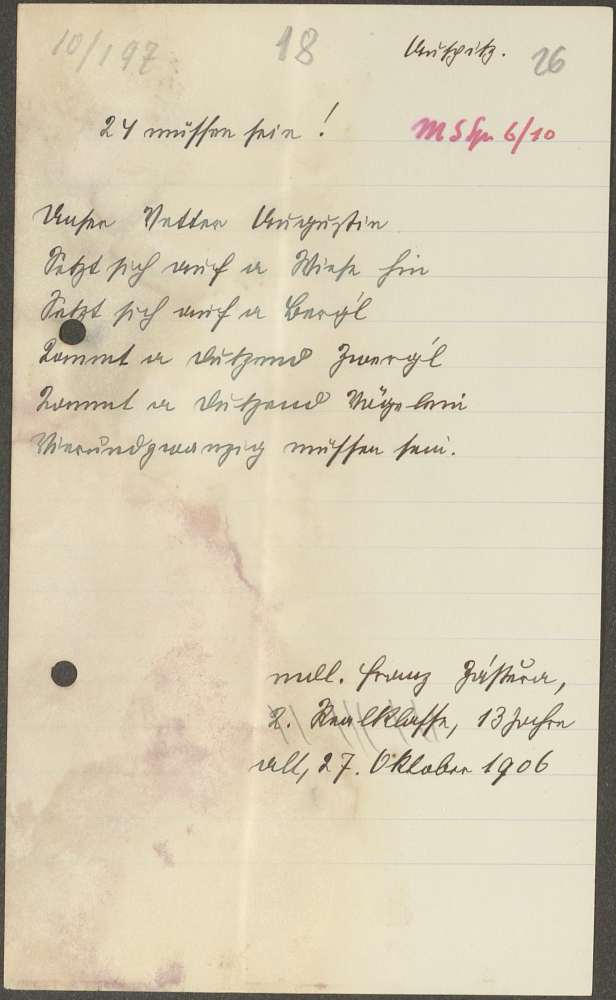 10/197 18 Auspitz. 26
24 müssen sein! MS 6/10
Unser Vetter Augustin
Setzt sich auf a Wiese hin
Setzt sich auf a Bergl
Kommt a Dutzend Zwergl
Kommt a Dutzend Vögelein
Vierundzwanzig müssen sein.
mdl. Franz Zástěra,
2. Realklasse, 13 Jahre
alt, 27. Oktober 1906